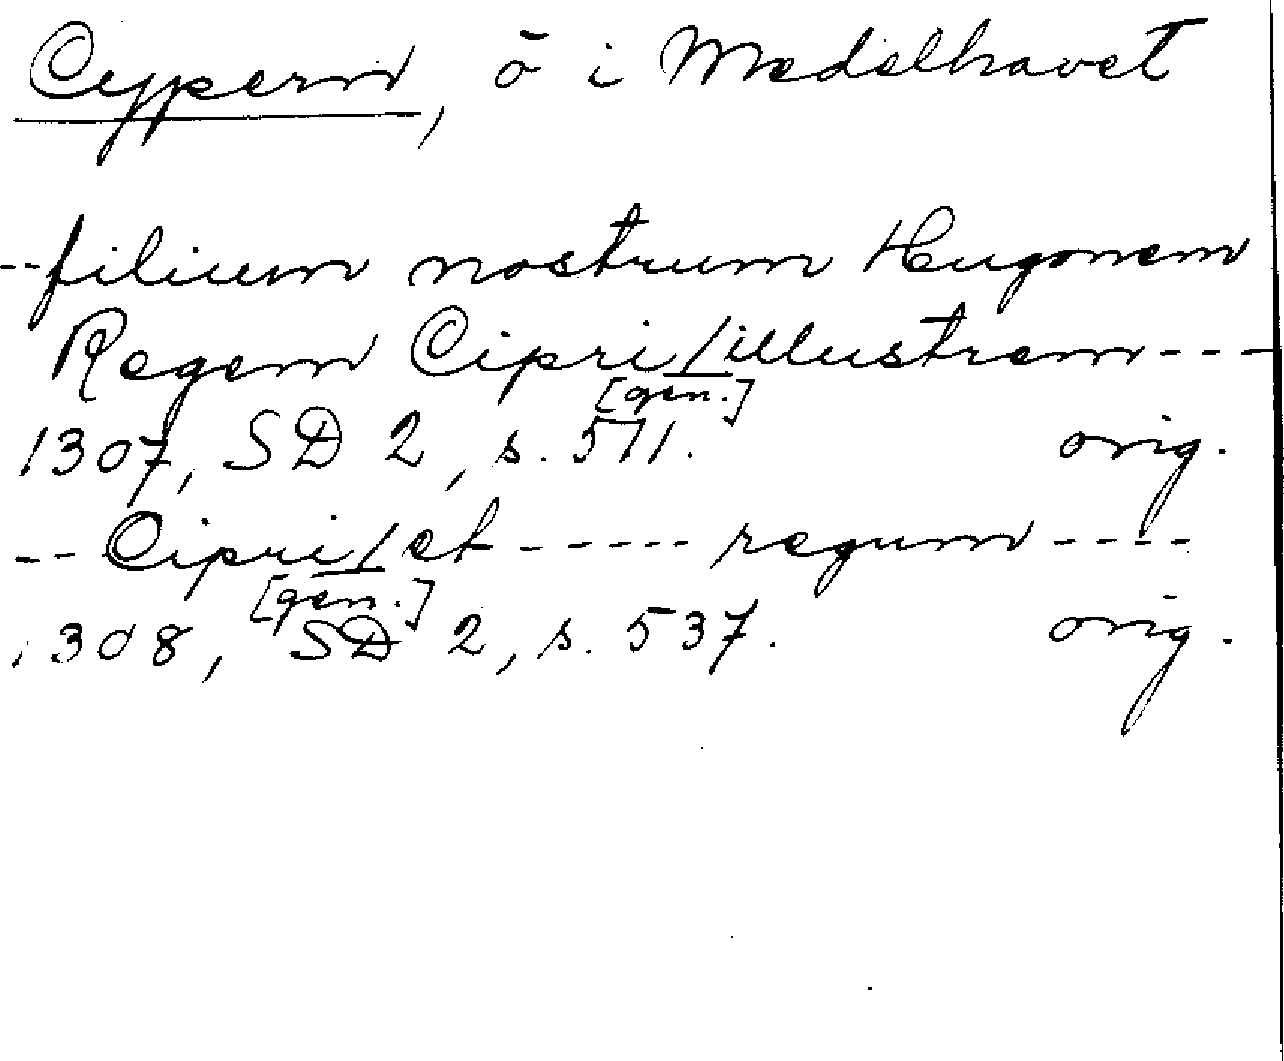 Cypern, ö i Medelhavet
--filium nostrum Hugonem
Regem Cipri/illustrem---
[gen.]
1307, SD 2, s. 511. orig.
-- Cipri/et ------ regum ----
[gen.]
1308, SD 2, s. 537. orig.